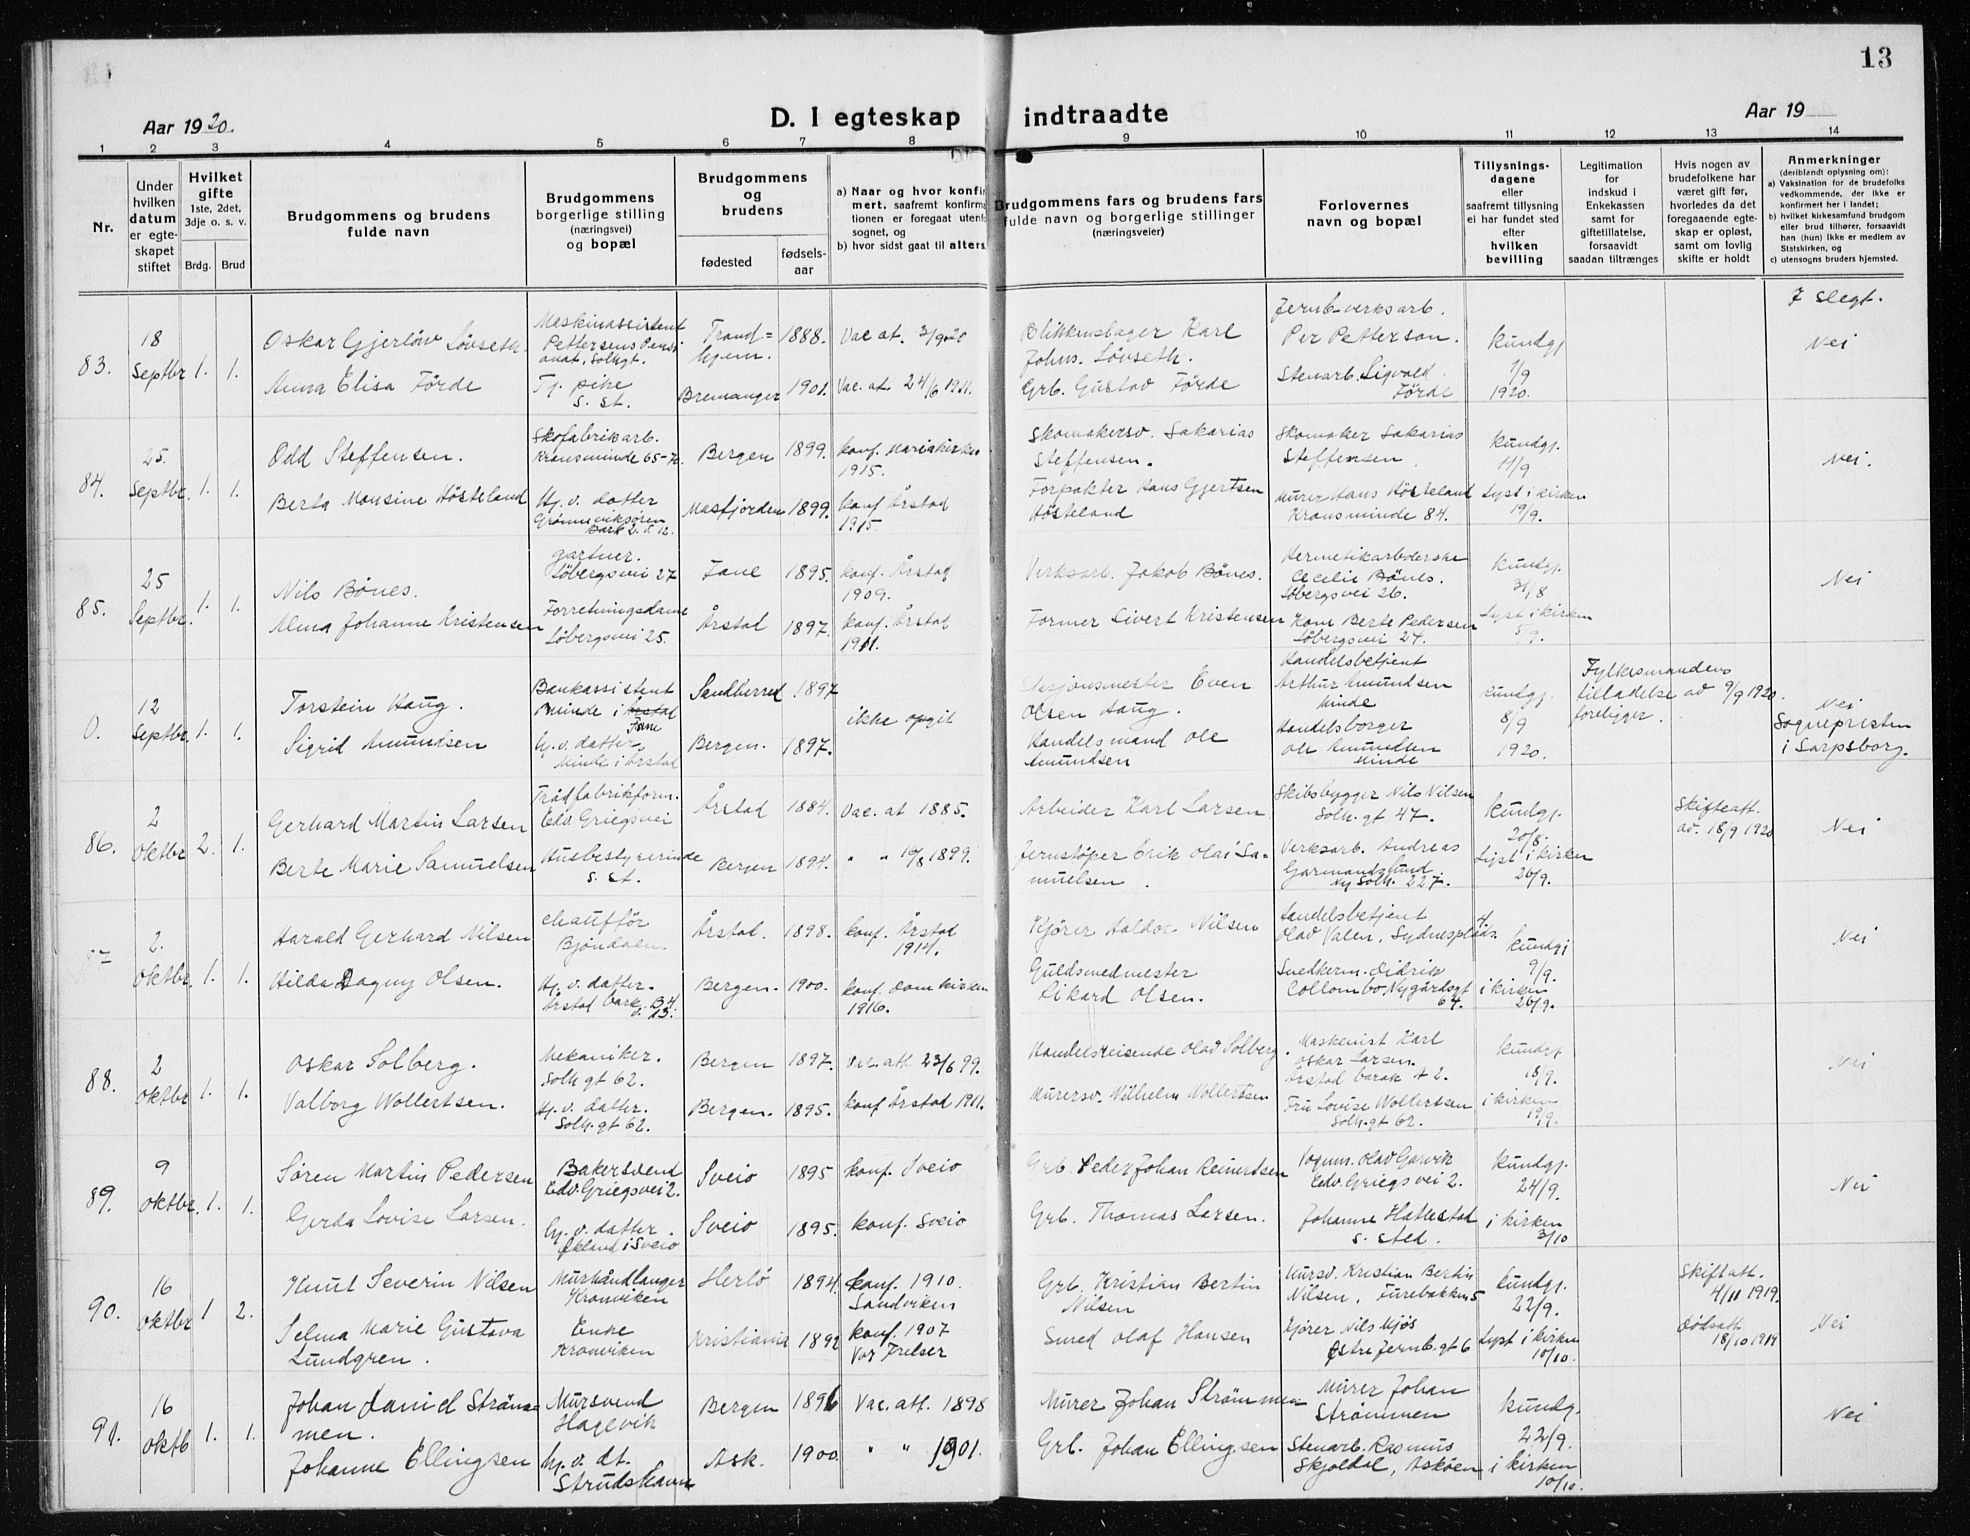 13
Aar 1920.
D. I egteskap indtraadte
Aar 19
1 2 3 4 5 6 7 8 9 10 11 12 13 14
Nr.
Under hvilken datum er egteskapet stiftet
Hvilket gifte
1ste, 2det, 3dje o. s. v.
Brdg. Brud
Brudgommens og brudens fulde navn
Brudgommens borgerlige stilling (næringsvei) og bopæl
Brudgommens og brudens
fødested
fødselsaar
a) Naar og hvor konfirmert, saafremt konfirmationen er foregaat utenfor sognet, og
b) hvor sidst gaat til alters
Brudgommens fars og brudens fars fulde navn og borgerlige stillinger (næringsveier)
Forlovernes navn og bopæl
Tillysningsdagene eller saafremt tillysning ei har fundet sted efter hvilken bevilling
Legitimation for indskud i Enkekassen samt for giftetillatelse, forsaavidt saadan tiltrænges
Hvis nogen av brudefolkene har været gift før, hvorledes da det foregaaende egteskap er opløst, samt om lovlig skifte er holdt
Anmerkninger (deriblandt oplysning om):
a) Vaksination for de brudefolks vedkommende, der ikke er konfirmert her i landet;
b) hvilket kirkesamfund brudgom eller brud tilhører, forsaavidt han (hun) ikke er medlem av Statskirken, og
c) utensogns bruders hjemsted.
83. 18 Septbr 1. 1.
Oskar Gjerlöw Lövseth.
Maskinassistent Pettersens Pensionat, Solhgt.
Trondhjem. 1888. Vac at. 3/9 20
Blikkenslager Karl Johns. Lövseth.
Jernb.verksarb. Per Petterson.
kundgj 7/9 1920.
7 slegt. Nei
Anna Elisa Förde
Tj. pike s. st.
Bremanger 1901. Vac. at. 24/6 1911.
Grb. Gustav Förde
Stenarb. Sigvald Förde
84. 25. Septbr. 1. 1.
Odd Steffensen.
Skofabrikarb. Kransminde 65-76.
Bergen 1899. konf. Mariakirken 1915.
Skomakersv. Sakarias Steffensen.
Skomaker Sakarias Steffensen
kundgj. 11/9
Nei.
Berta Monsine Hösteland
Hj. v. datter Grönneviksören Bark 2. v. 12.
Masfjorden 1899. konf Årstad 1915.
Forpakter Hans Gjertsen Hösteland
Murer Hans Hösteland Kransminde 84.
Lyst i kirken 19/9.
85. 25 Septbr. 1. 1.
Nils Bönes.
gartner. Löbergsvei 27
Fane 1895. konf. Årstad 1909.
Verksarb. Jakob Bönes.
Hermetikarbeiderske Cecilie Bönes. Löbergsvei 26.
kundgj. 31/8
Nei
Alma Johanne Kristensen
Forretningsdame Löbergsvei 25.
Årstad 1897. konf. Årstad 1911.
Former Sivert Kristensen
Kone Berte Pedersen Löbergsvei 24.
Lyst i kirken 5/9.
0. 12 Septbr. 1. 1.
Torstein Haug.
Bankassistent Minde i Årstad Fane
Sandherred 1897
ikke opgit
Stasjonsmester Even Olsen Haug.
Handelsbetjent Arthur Amundsen Minde
kundgj. 8/9 1920.
Fylkesmandens tilladelse av 9/9 1920 foreligger.
Nei Sognepresten i Sarpsborg.
Sigrid Amundsen
hj. v. datter Minde i Årstad
Bergen. 1897.
Handelsmand Ole Amundsen
Handelsborger Ole Amundsen Minde
86. 2 Oktbr 2. 1.
Gerhard Martin Larsen
Trådfabrikform. Edv. Griegsvei
Årstad 1884. Vac. at 1885.
Arbeider Karl Larsen
Skibsbygger Nils Nilsen Solh. gt 47.
kundgj. 20/8.
Skifteatt. av. 18/9 1920
Nei
Berte Marie Samuelsen
Husbestyrerinde s. st.
Bergen 1894. " " 10/8 1899.
Jernstöper Erik Olai Samuelsen.
Verksarb. Andreas Garmandslund Ny Solh. 227.
Lyst i kirken 26/9.
87 2. Oktbr. 1. 1.
Harald Gerhard Nilsen
chafför Bjöndalen.
Årstad. 1898. konf. Årstad 1914.
Kjörer Haldor Nilsen
Handelsbetjent Olav Valen, Sydnesplads 4.
kundgj 9/9.
Nei
Hilda Dagny Olsen.
Hj. v. datter. Årstad bark. B4 v. 13.
Bergen. 1900. konf. Domkirken 1916.
Guldsmedmester Rikard Olsen.
Snedkerm. Didrik Collombo, Nygårdsgt 64.
i kirken 26/9.
88. 2 Oktbr 1. 1.
Oskar Solberg.
Mekaniker. Solh gt 62.
Bergen 1897. Vac. att 23/6 99.
Handelsreisende Olav Solberg.
Maskenist Karl Oskar Larsen. Årstad barak 4 2.
kundgj. 18/9.
Nei
Valborg Wollertsen.
Hj. v. datter. Solh. gt 62.
Bergen. 1895. konf Årstad 1911.
Murersv. Wilhelm Wollertsen
Fru Lovise Wollertsen Solh. gt 62.
i kirken 19/9.
89. 9 Oktbr. 1. 1.
Sören Martin Pedersen
Bakersvend Edv. Griegsvei 2.
Sveio 1895 konf. Sveio
Grb. Peder Johan Reinertsen
Vognm. Olav Garvik Edv. Griegs vei 2.
kundgj. 24/9.
Nei
Gerda Lovise Larsen.
hj. v. datter. Ökland i Sveio
Sveio 1895. konf. Sveio
Grb. Thomas Larsen.
Johanne Hattestad s. sted.
i kirken 3/10
90. 16 Oktbr 1 2.
Knut Severin Nilsen
Murhåndlanger Kronviken
Herlö 1894. konf. 1910. Sandviken
Grb. Kristian Bertin Nilsen
Mursv. Kristian Bertin Nilsen, Furebakken 5
kundgj. 22/9.
Skiftatt. 4/11 1919.
Nei
Selma Marie Gustava Lundgren.
Enke Kronviken
Kristiania 1892 konf. 1907 Vor Frelser
Smed Olaf Hansen
Kjörer Nils Mjös Östre Jernb. gt 6
Lyst i kirken 10/10.
Dödsatt. 18/10 1914
91. 16 Oktb 1. 1.
Johan Daniel Strömmen.
Mursvend Hagevik
Bergen 1896 Vac. att. 1898
Murer Johan Strömmen
Murer Johan Strömmen
kundgj. 22/9.
Nei
Johanne Ellingsen
hj. v. dt. Strudshavn
Ask. 1900. " " 1901.
Grb. Johan Ellingsen
Stenarb. Rasmus Skjoldal, Asköen
i kirken 10/10.